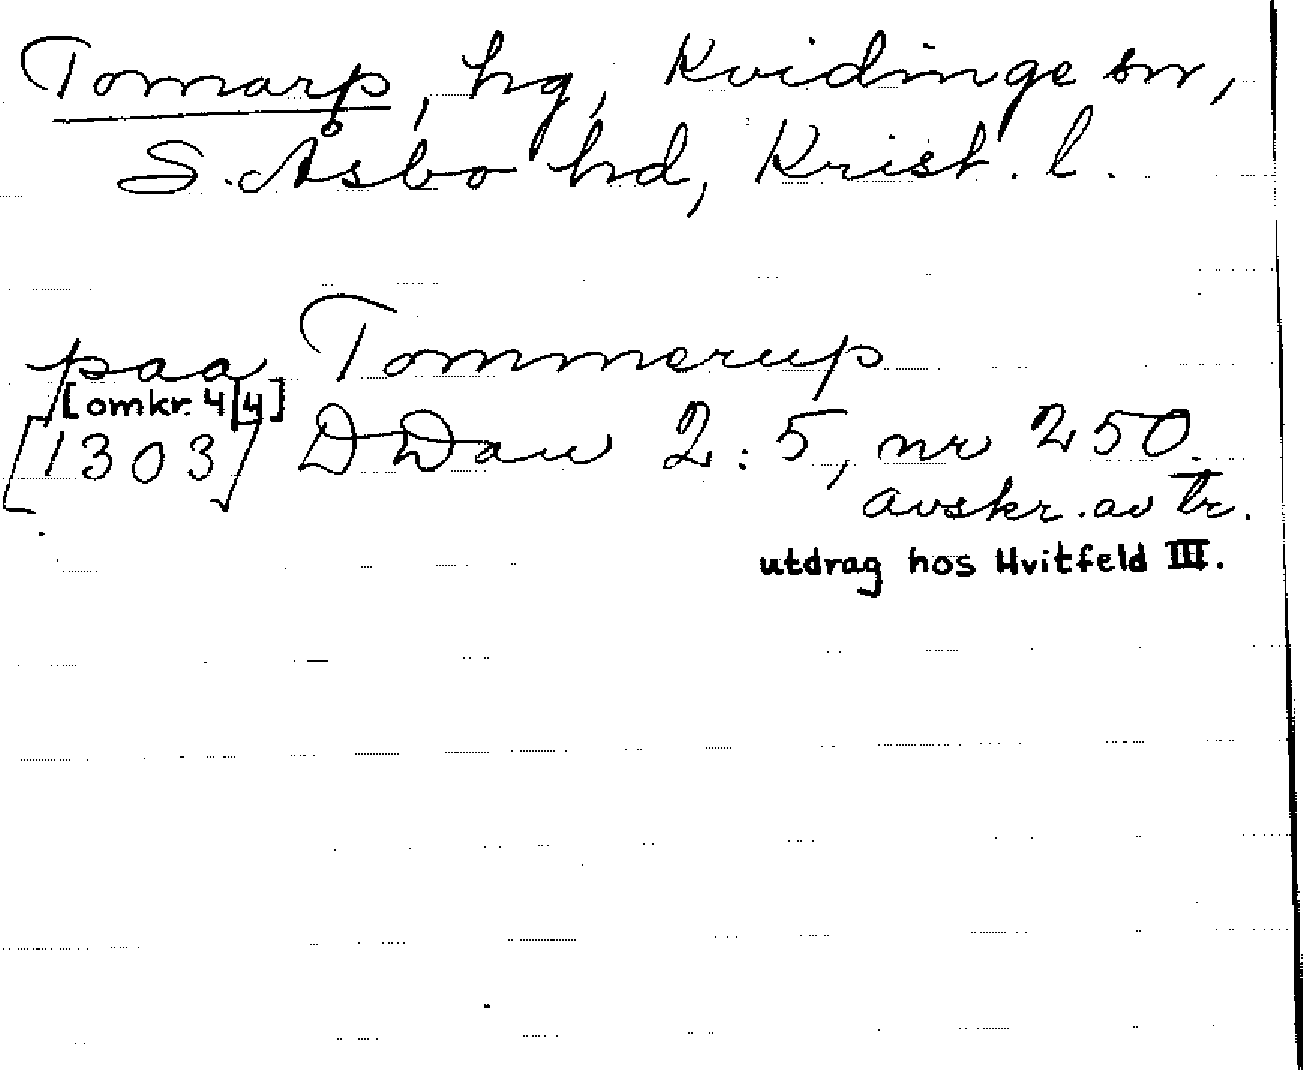 Tomarp, hg, Kvidinge sn,
S. Åsbo hd, Krist. l.
paa Tommerup
[omkr. 4/4]
[1303] DDan 2:5, nr 250.
avskr. av tr.
utdrag hos Hvitfeld III.